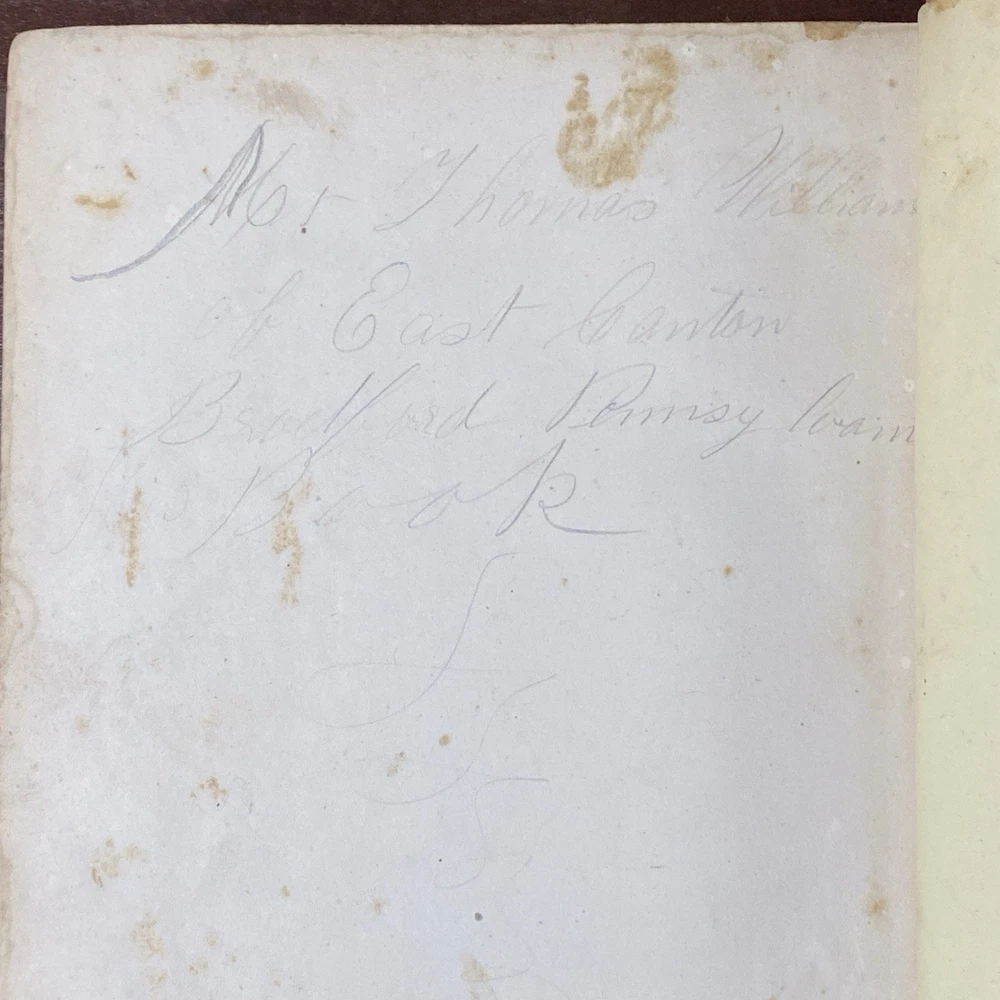 Mr. Thomas William
of East Canton
Bradford Pennsylvani
his Book